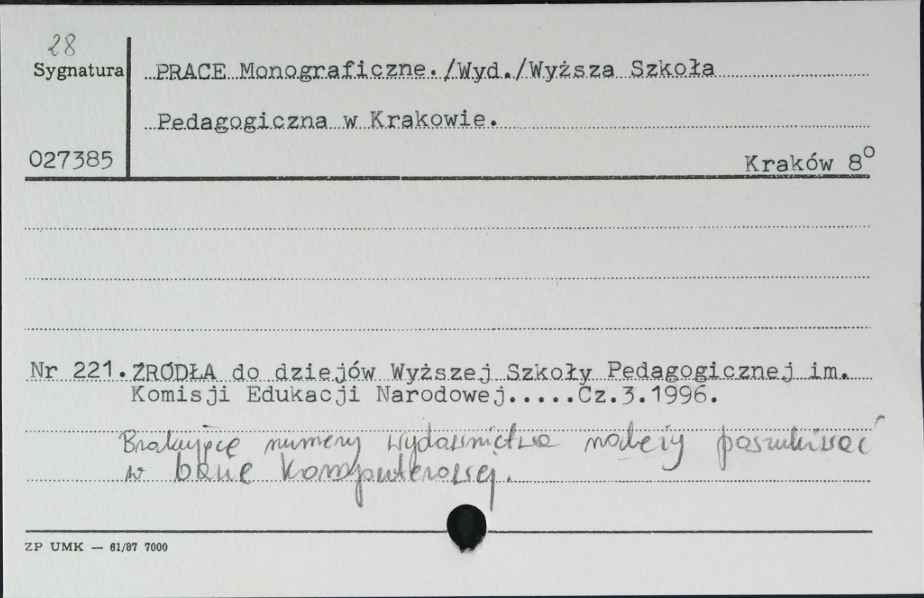 28
Sygnatura
PRACE Monograficzne./Wyd./Wyższa Szkoła
Pedagogiczna w Krakowie.
027385
Kraków 8º
Nr 221. ŹRÓDŁA do dziejów Wyższej Szkoły Pedagogicznej im.
Komisji Edukacji Narodowej.....Cz.3.1996.
Brakujące numery wydawnictwa należy poszukiwać
w bazie komputerowej.
ZP UMK — 61/87 7000